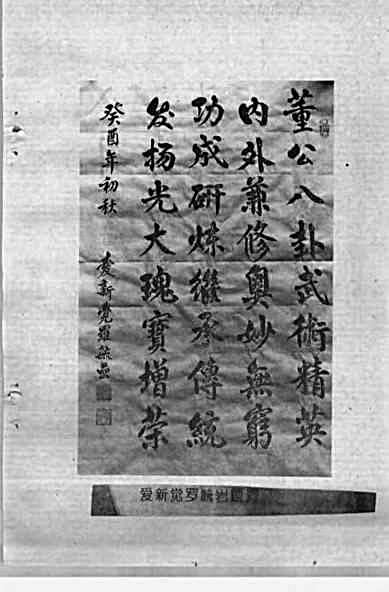 董公八卦武術精英
内外兼修奥妙無窮
功成研炼繼承傳統
发扬光大瑰寶增荣
癸酉年初秋 愛新覺羅毓嵒
爱新觉罗毓岩